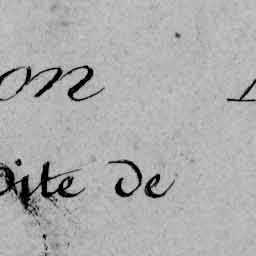 on
oite de